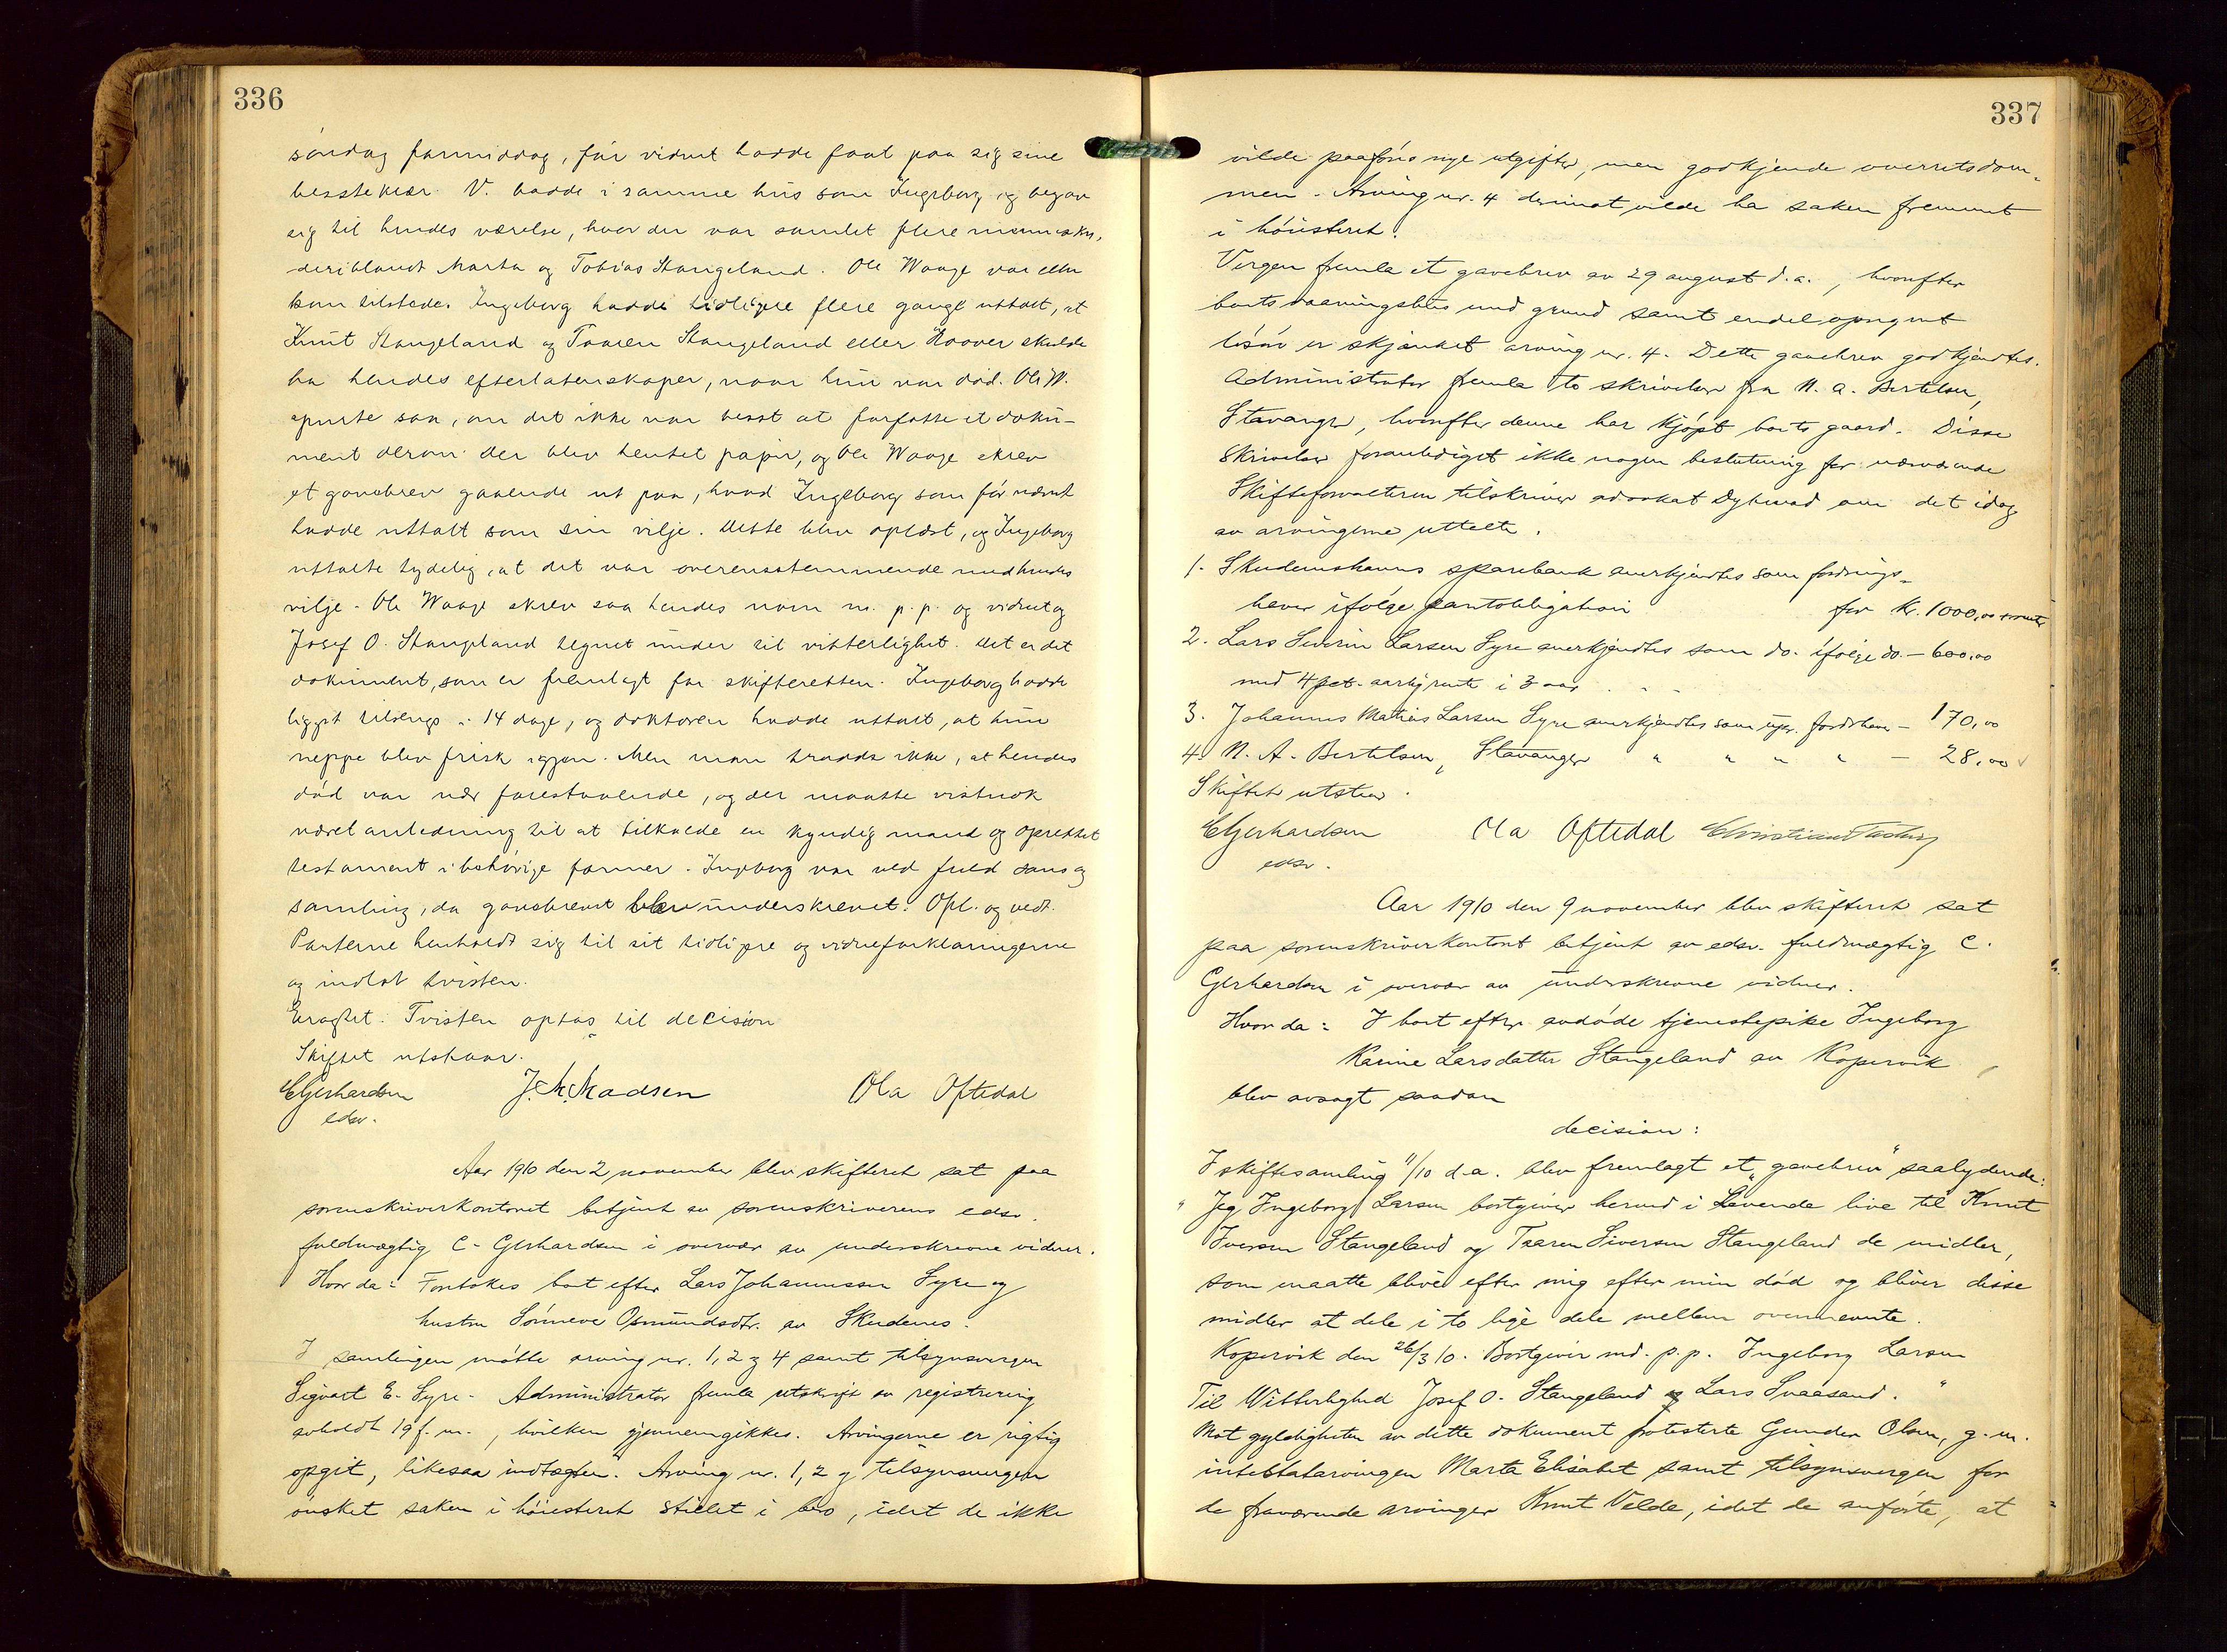 336
søndag formiddag, før vidnet hadde faat paa sig sine
besteklær. V. bodde i samme hus som Ingeborg og begav
sig til hendes værelse, hvor der var samlet flere mennesker,
deriblandt Marta og Tobias Stangeland. Ole Waage var eller
kom tilstede. Ingeborg hadde tidligere flere gange uttalt, at
Knut Stangeland og Taaren Stangeland eller Hoover skulde
ha hendes efterlatenskaper, naar hun var død. Ole W.
spurte saa, om det ikke var best at forfatte et doku-
ment derom. Der blev hentet papir, og Ole Waage skrev
et gavebrev gaaende ut paa, hvad Ingeborg som før nævnt
hadde uttalt som sin vilje. Dette blev oplæst, og Ingeborg
uttalte tydelig, at det var overensstemmende med hendes
vilje. Ole Waage skrev saa hendes navn m. p. p. og vidnet og
Josef O. Stangeland tegnet under til vitterlighet. Det er det
dokument, som er fremlagt for skifteretten. Ingeborg hadde
ligget tilsengs i 14 dage, og doktoren hadde uttalt, at hun
neppe blev frisk igjen. Men man trodde ikke, at hendes
død var nær forestaaende, og der maatte vistnok
været anledning til at tilkalde en kyndig mand og oprettet
testament i behørige former. Ingeborg var ved fuld sans og
samling, da gavebrevet blev underskrevet. Opl. og vedt.
Parterne henholdt sig til sit tidligere og vidneforklaringerne
og indlot tvisten.
Eragtet. Tvisten optas til decision
Skiftet utstaar.
C Gerhardsen J. M. Madsen Ola Oftedal
edsv.
Aar 1910 den 2 november blev skifteret sat paa
sorenskriverkontoret betjent av sorenskriverens edsv.
fuldmægtig C. Gerhardsen i overvær av underskrevne vidner.
Hvor da: Foretokes bort efter Lars Johannessen Syre og
hustru Sønneve Osmundsdtr. av Skudenes.
I samlingen møtte arving nr. 1, 2 og 4 samt tilsynsvergen
Sigvart E. Syre. Administrator fremla utskrift av registrering
avholdt 19 f. m., hvilken gjennemgikkes. Arvingerne er rigtig
opgit, likesaa indtægten. Arving nr. 1, 2 og tilsynsvergen
ønsket saken i høiesteret stillet i bero, idet de ikke
337
vilde paaføres nye utgifter, men godkjende overretsdom-
men. Arving nr. 4 derimot vilde ha saken fremmet
i høiesteret.
Vergen fremla et gavebrev av 29 august d. a., hvorefter
boets vaaningshus med grund samt endel opregnet
løsøre er skjænket arving nr. 4. Dette gavebrev godkjendtes.
Administrator fremla to skrivelser fra N. A. Bertelsen,
Stavanger, hvorefter denne har kjøpt boets gaard. Disse
skrivelser foranlediget ikke nogen beslutning for nærværende
Skifteforvalteren tilskriver advokat Dyhevad om det idag
av arvingerne uttalte.
1. Skudeneshavns sparebank anerkjendtes som fordrings-
haver ifølge pantobligation for kr. 1000,00 + renter
2. Lars Severin Larsen Syre anerkjendtes som do. ifølge do. – 600,00
med 4 pct. aarlig rente i 3 aar
3. Johannes Matias Larsen Syre anerkjendtes som upr. fordrshaver – 170,00
4. N. A. Bertelsen, Stavanger " " " " – 28,00
Skiftet utstaar.
C Gerhardsen Ola Oftedal Christian
edsv.
Aar 1910 den 9 november blev skifteret sat
paa sorenskriverkontoret betjent av edsv. fuldmægtig C.
Gerhardsen i overvær av underskrevne vidner.
Hvor da: I boet efter avdøde tjenestepike Ingeborg
Karine Larsdatter Stangeland av Kopervik
blev avsagt saadan
decision:
I skiftesamling 11/10 d. a. blev fremlagt et "gavebrev" saalydende:
" Jeg Ingeborg Larsen bortgiver herved i Levende live til Knut
Iversen Stangeland og Taaren Siversen Stangeland de midler,
som maatte blive efter mig efter min død og bliver disse
midler at dele i to lige dele mellem ovennevnte.
Kopervik den 26/3 10. Bortgiver md. p. p. Ingeborg Larsen
Til Witterlighed Josef O. Stangeland og Lars Svaasand. "
Mot gyldigheten av dette dokument protesterte Gunder Olsen, g. m.
intestatarvingen Marta Elisabet samt tilsynsvergen for
de fraværende arvinger Knut Velde, idet de anførte, at